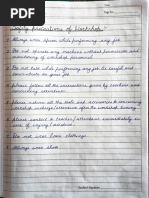 Date
Page No.
Safety Precautions of Workshop
1. Always wear apron while performing any job.
2. Do not operate any machine without permission and
monitoring of workshop personnel.
3. Do not talk while performing any job. Be careful and
concentrate on your job.
4. Please follow all the instructions given by teachers and
workshop attendants.
5. Please return all the tools and accessories to concerning
workshop lecturer/attendants after the workshop timing.
6. Please contact to teacher/attendant immediately in
case of injury/accident.
7. Do not wear loose clothings.
8. Always wear shoe.
Teacher's Signature